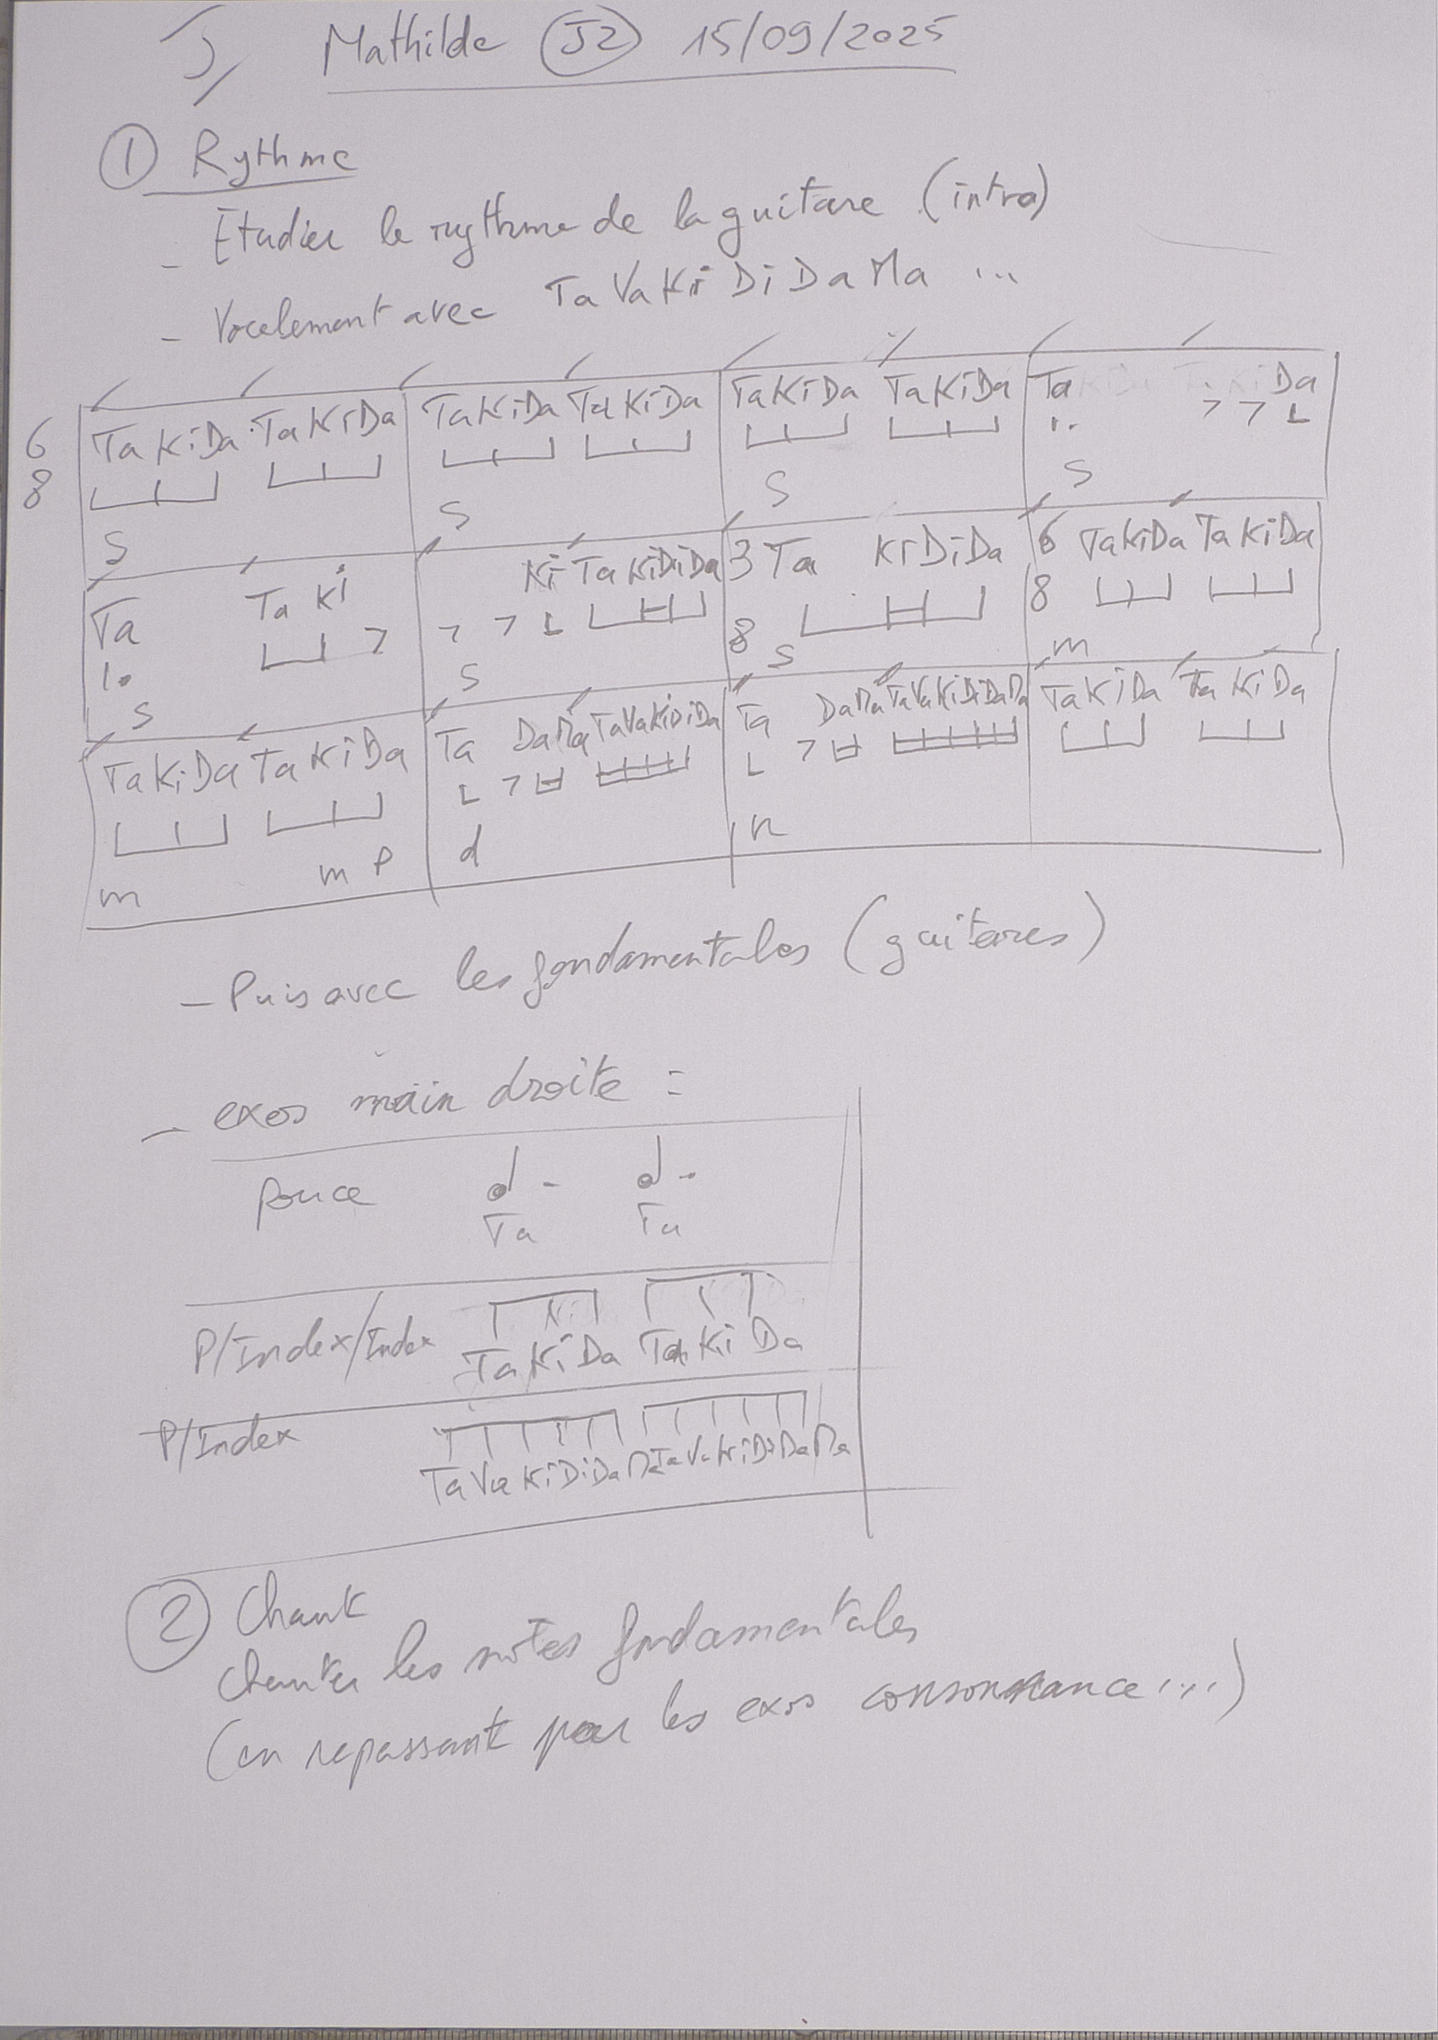 Mathilde J2 15/09/2025
1 Rythme
- Etudier le rythme de la guitare (intro)
- Vocalement avec Ta Va Ki Di Da Ma ...
6 8 Ta Ki Da Ta Ki Da Ta Ki Da Ta Ki Da Ta Ki Da Ta Ki Da Ta Da
S S S S
Ta Ta Ki Ki Ta Ki Di Da 3 8 Ta Ki Di Da 6 8 Ta Ki Da Ta Ki Da
S S S m
Ta Ki Da Ta Ki Da Ta Da Ma Ta Va Ki Di Da Ta Da Ma Ta Va Ki Di Da Ma Ta Ki Da Ta Ki Da
m m P d r
- Puis avec les fondamentales (guitares)
- exos main droite :
Pouce
Ta Ta
P/Index/Index
Ta Ki Da Ta Ki Da
P/Index
Ta Va Ki Di Da Ma Ta Va Ki Di Da Ma
2 Chant
Chanter les notes fondamentales
(en repassant par les exos consonnance...)